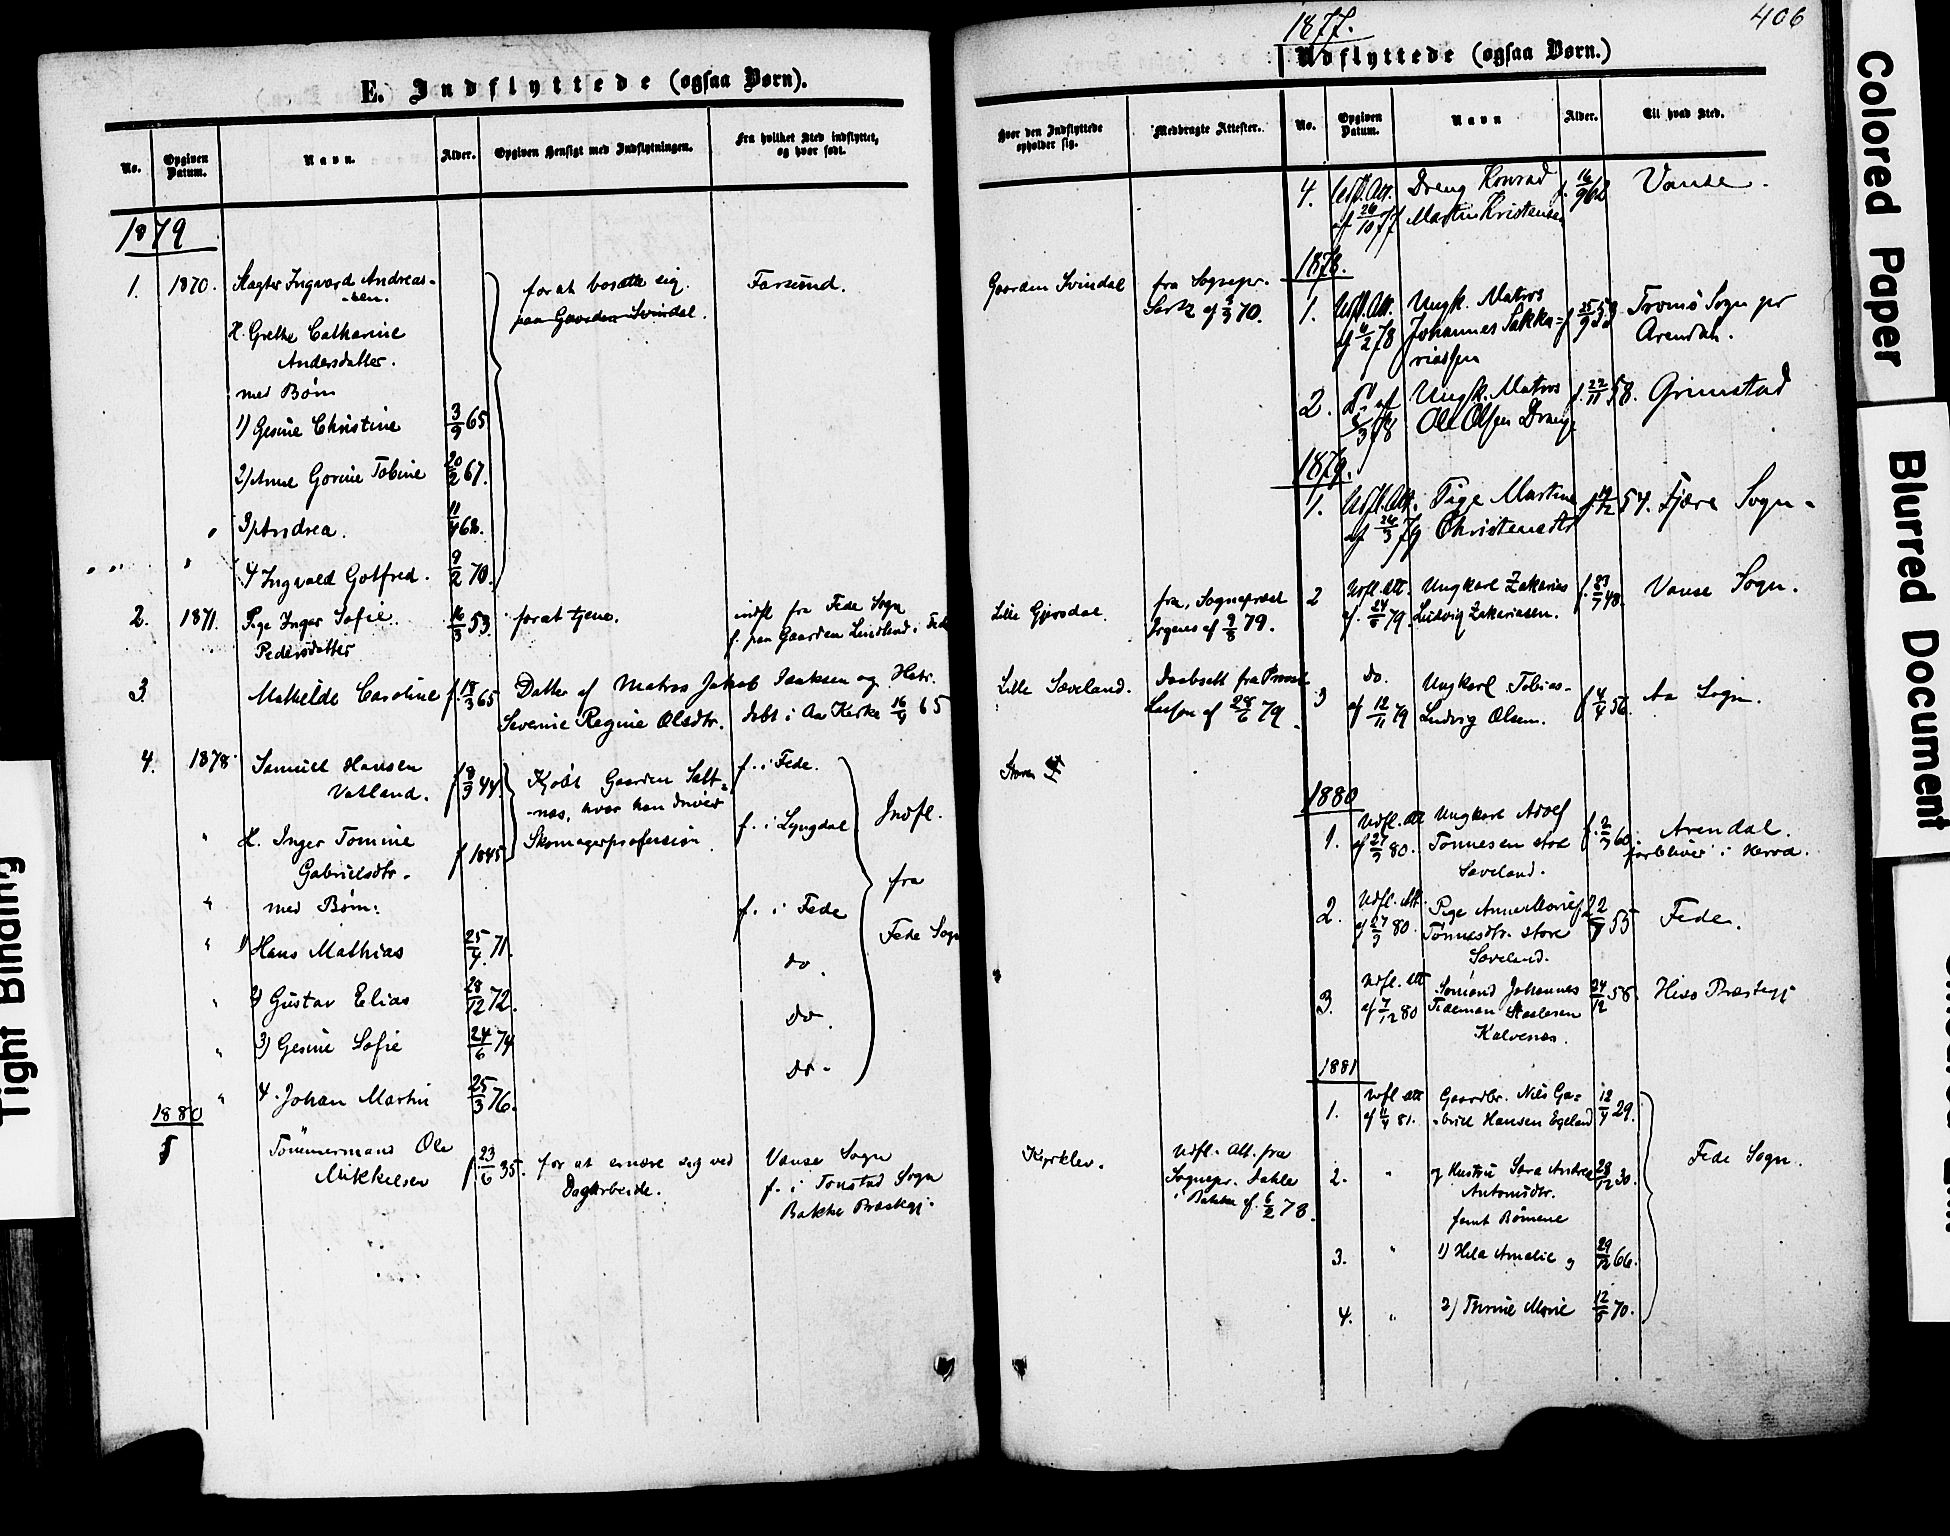 E. Indflyttede (ogsaa Børn).
No.
Opgiven Datum.
Navn.
Alder.
Opgiven Hensigt med Indflytningen.
Fra hvilket Sted indflyttet, og hvor født.
1879
1. 1870. Slagter Ingvard Andreas-
-sen.
for at bosætte sig
paa Gaarden Svindal.
Farsund.
H. Grethe Cathrine
Andersdatter.
med Børn
1) Gesine Christine 3/9 65
2) Anne Gorine Tobine 20/2 67.
3) Andrea. 11/4 68.
4 Ingvald Gotfred. 9/2 70.
2. 1871. Pige Inger Sofie
Pedersdatter
16/3 53. for at tjene.
indfl fra Fede Sogn
f. paa Gaarden Lindland i Fede
3. Mathilde Caroline f. 18/3 65
Datter af Matros Jakob Isaksen og Hstr.
Severine Regine Olsdtr. døbt i Aa Kirke 16/4 65
4. 1878. Samuel Hansen
Vatland. f 8/3 44.
Kjøbt Gaarden Salt-
-nes, hvor han driver
Skomagerprofession.
f. i Fede.
" H. Inger Tomine
Gabrielsdtr.
f 1845
f. i Lyngdal
Indfl.
fra
Fede Sogn
" med Børn:
f. i Fede
" 1) Hans Mathias 25/4 71. do.
" 2) Gustav Elias 28/12 72. do.
" 3) Gesine Sofie 24/6 74 do.
" 4. Johan Martin 25/3 76.
1880
Tømmermand Ole
Mikkelsen f. 23/6 35.
for at ernære sig ved
Dagarbeide.
Vanse Sogn
f. i Tonstad Sogn
Bakke Præstegj.
406
1877.
Udflyttede (ogsaa Børn.)
Hvor den Indflyttede opholder sig.
Medbragte Attester.
No.
Opgiven Datum.
Navn
Alder.
Til hvad Sted.
4. Udfl. Att.
af 26/10 77
Dreng Konrad
Martin Kristensen
f. 16/9 62
Vanse.
Gaarden Svindal
fra Sognepr.
1878.
1. Udfl. Att.
af 6/2 78
Ungk. Matros
Johannes Sakka-
riassen
f. 25/9 53.
Tromø Sogn pr
Arendal.
2. Do af
Ungk. Matros
Ole Olsen Drange
f. 22/11 58.
Grimstad
1879.
1. Udfl. Att.
af 26/3 79
Pige Martine
Christensdtr
Fjære Sogn.
Lille Gjersdal.
fra Sogneprest
af 9/8 79.
2 Udfl. Att.
af. 24/5 79.
Ungkarl Zakarias
Ludvig Zakariasen.
f. 23/7 48.
Vanse Sogn.
Lille Sæveland.
Daabsatt fra Provst
af 28/6 79.
3 Do.
af 12/11 79
Ungkarl Tobias
Ludvig Olsen.
f 4/4 56.
Aa Sogn.
Store
1880
1. Udfl. Att
af 27/3 80.
Ungkarl Adolf
Tønnesen store
Sæveland.
f. 2/3 60.
Arendal.
forbliver i Herred.
2. Udfl. Att.
af 27/3 80.
Pige Anne Marie
Tønnesdtr. store
Sæveland.
55
Fede.
3. Udfl. Att
af 7/12 80
Sømand Johannes
Tideman
Kalvenes.
24/12 58.
Hisø Præstegj
1881
1. Udfl Att
af 11/4 81.
Gaardbr. Nils Ga-
-briel Hansen Egeland
12/4 29.
Kirkley.
Udfl. Att. fra
Sognepr. Dahle
i Bakke af. 6/2 78.
2. " og Hustru Sara Andrea
Antonsdtr.
28/12 30.
Fede Sogn.
samt Børnene
3. " 1) Hela Amalie og 29/12 66.
4. " 2) Thrine Marie 12/5 70.
Colored Paper
Blurred Document
Tight Binding